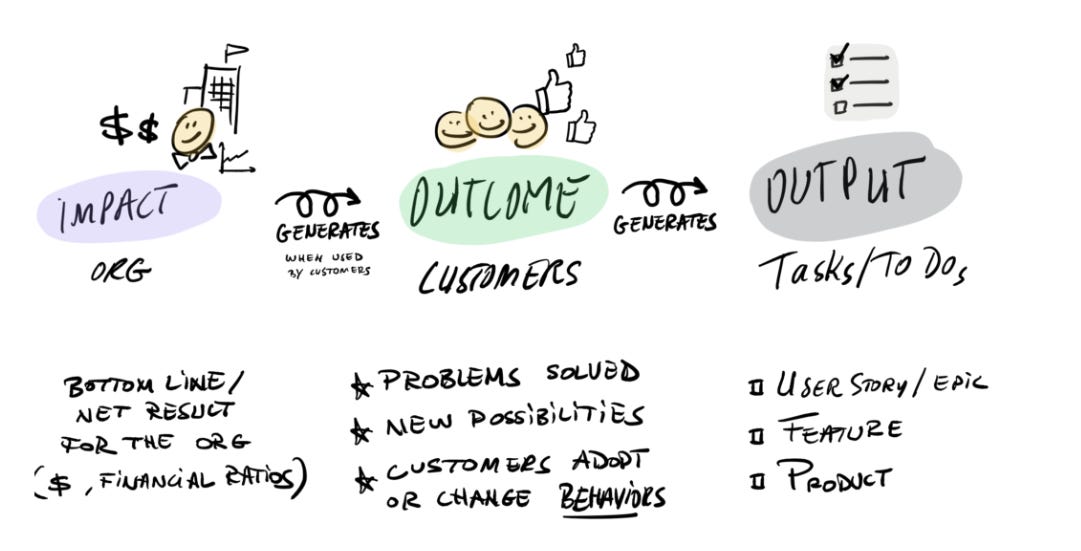 $$
IMPACT
ORG
GENERATES
WHEN USED
BY CUSTOMERS
OUTCOME
CUSTOMERS
GENERATES
OUTPUT
Tasks/To Dos
BOTTOM LINE/
NET RESULT
FOR THE ORG
($, FINANCIAL RATIOS)
PROBLEMS SOLVED
NEW POSSIBILITIES
CUSTOMERS ADOPT
OR CHANGE BEHAVIORS
USER STORY/EPIC
FEATURE
PRODUCT